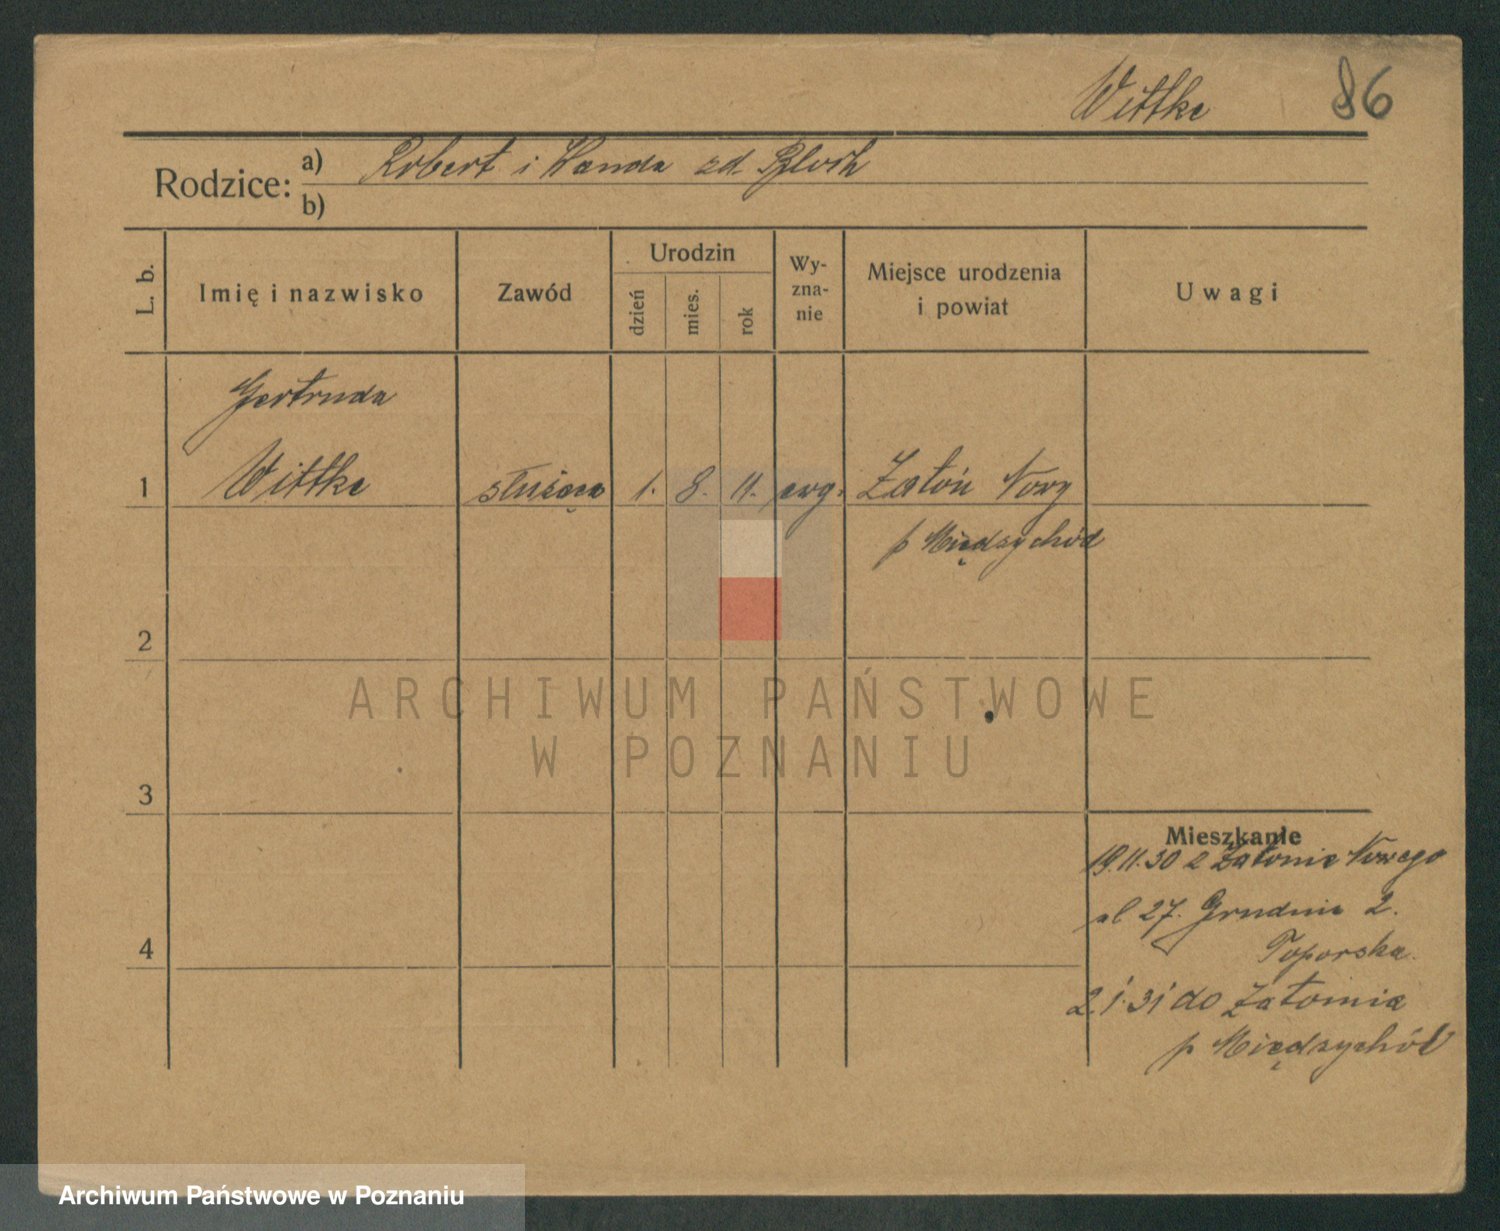 Wittke 86
Rodzice: a) Robert i Wanda zd. Bloch
b)
L. b. Imię i nazwisko Zawód Urodzin dzień mies. rok Wy-zna-nie Miejsce urodzenia i powiat Uwagi
Gertruda
1 Wittke służąca 1. 8. 11. ewg. Zatoń Nowy
p Międzychód
2
ARCHIWUM PAŃSTWOWE
W POZNANIU
3
Mieszkanie
19.11.30 z Zatonia Nowego
ul. 27. Grudnia 2.
4
Toporska.
2.1.31 do Zatomia
p Międzychód
Archiwum Państwowe w Poznaniu